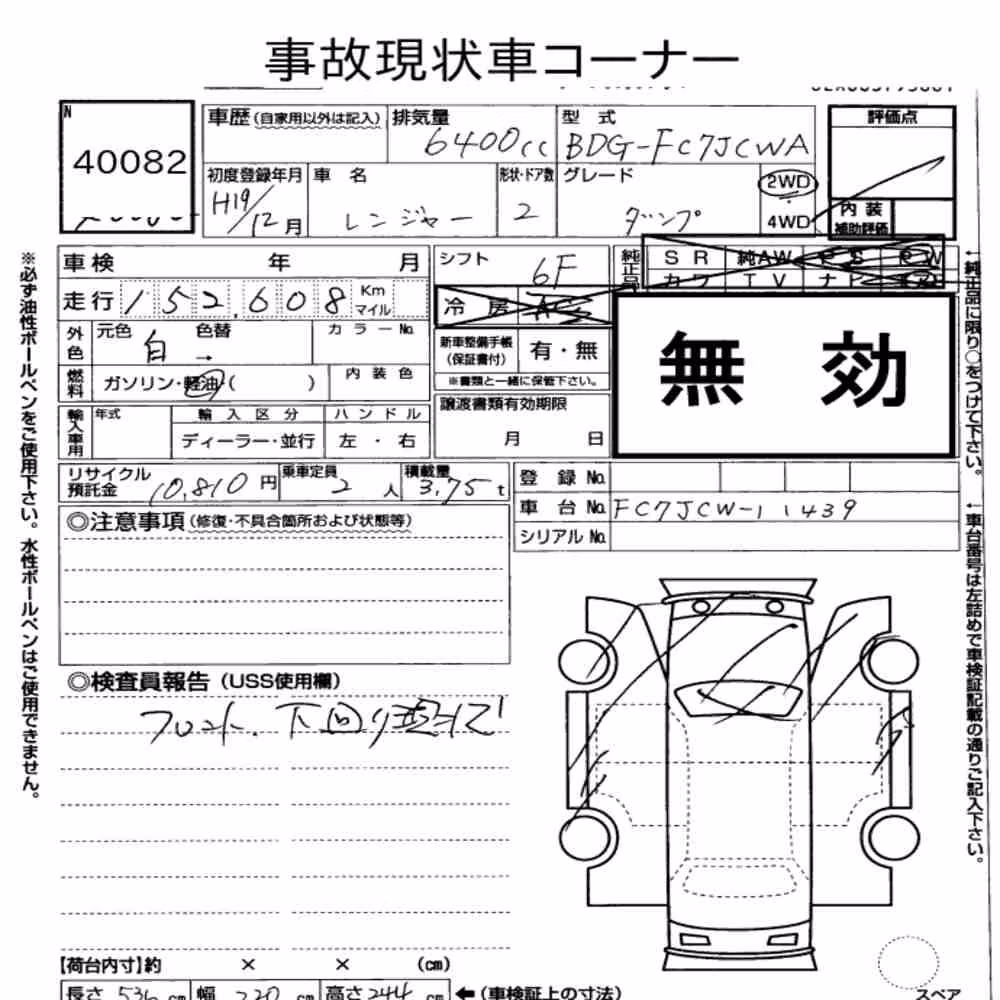 事故現状車コーナー
N
40082
車歴(自家用以外は記入)
排気量
6400cc
型式
BDG-FC7JCWA
評価点
初度登録年月
H19/12月
車名
レンジャー
形状・ドア数
2
グレード
ダンプ
2WD
4WD
内装
補助評価
車検 年 月
シフト
6F
純正品
SR 純AW PS PW
カワ TV ナビ
走行 152,608 Km
マイル
冷房 AC
外色
元色 白 色替 →
カラーNo.
新車整備手帳
(保証書付)
有・無
※書類と一緒に保管下さい。
無効
燃料
ガソリン・軽油( )
内装色
譲渡書類有効期限
月 日
輸入車用
年式
輸入区分
ハンドル
ディーラー・並行
左・右
リサイクル
預託金
10,810円
乗車定員
2人
積載量
3.75t
登録No.
車台No.
FC7JCW-11439
シリアルNo.
◎注意事項(修復・不具合箇所および状態等)
◎検査員報告(USS使用欄)
フロント、下回り
【荷台内寸】約 × × (cm)
長さ536cm 幅220cm 高さ244cm ←(車検証上の寸法)
スペア
※必ず油性ボールペンをご使用下さい。水性ボールペンはご使用できません。
←純正品に限り○をつけて下さい。
←車台番号は左詰めで車検証記載の通りご記入下さい。